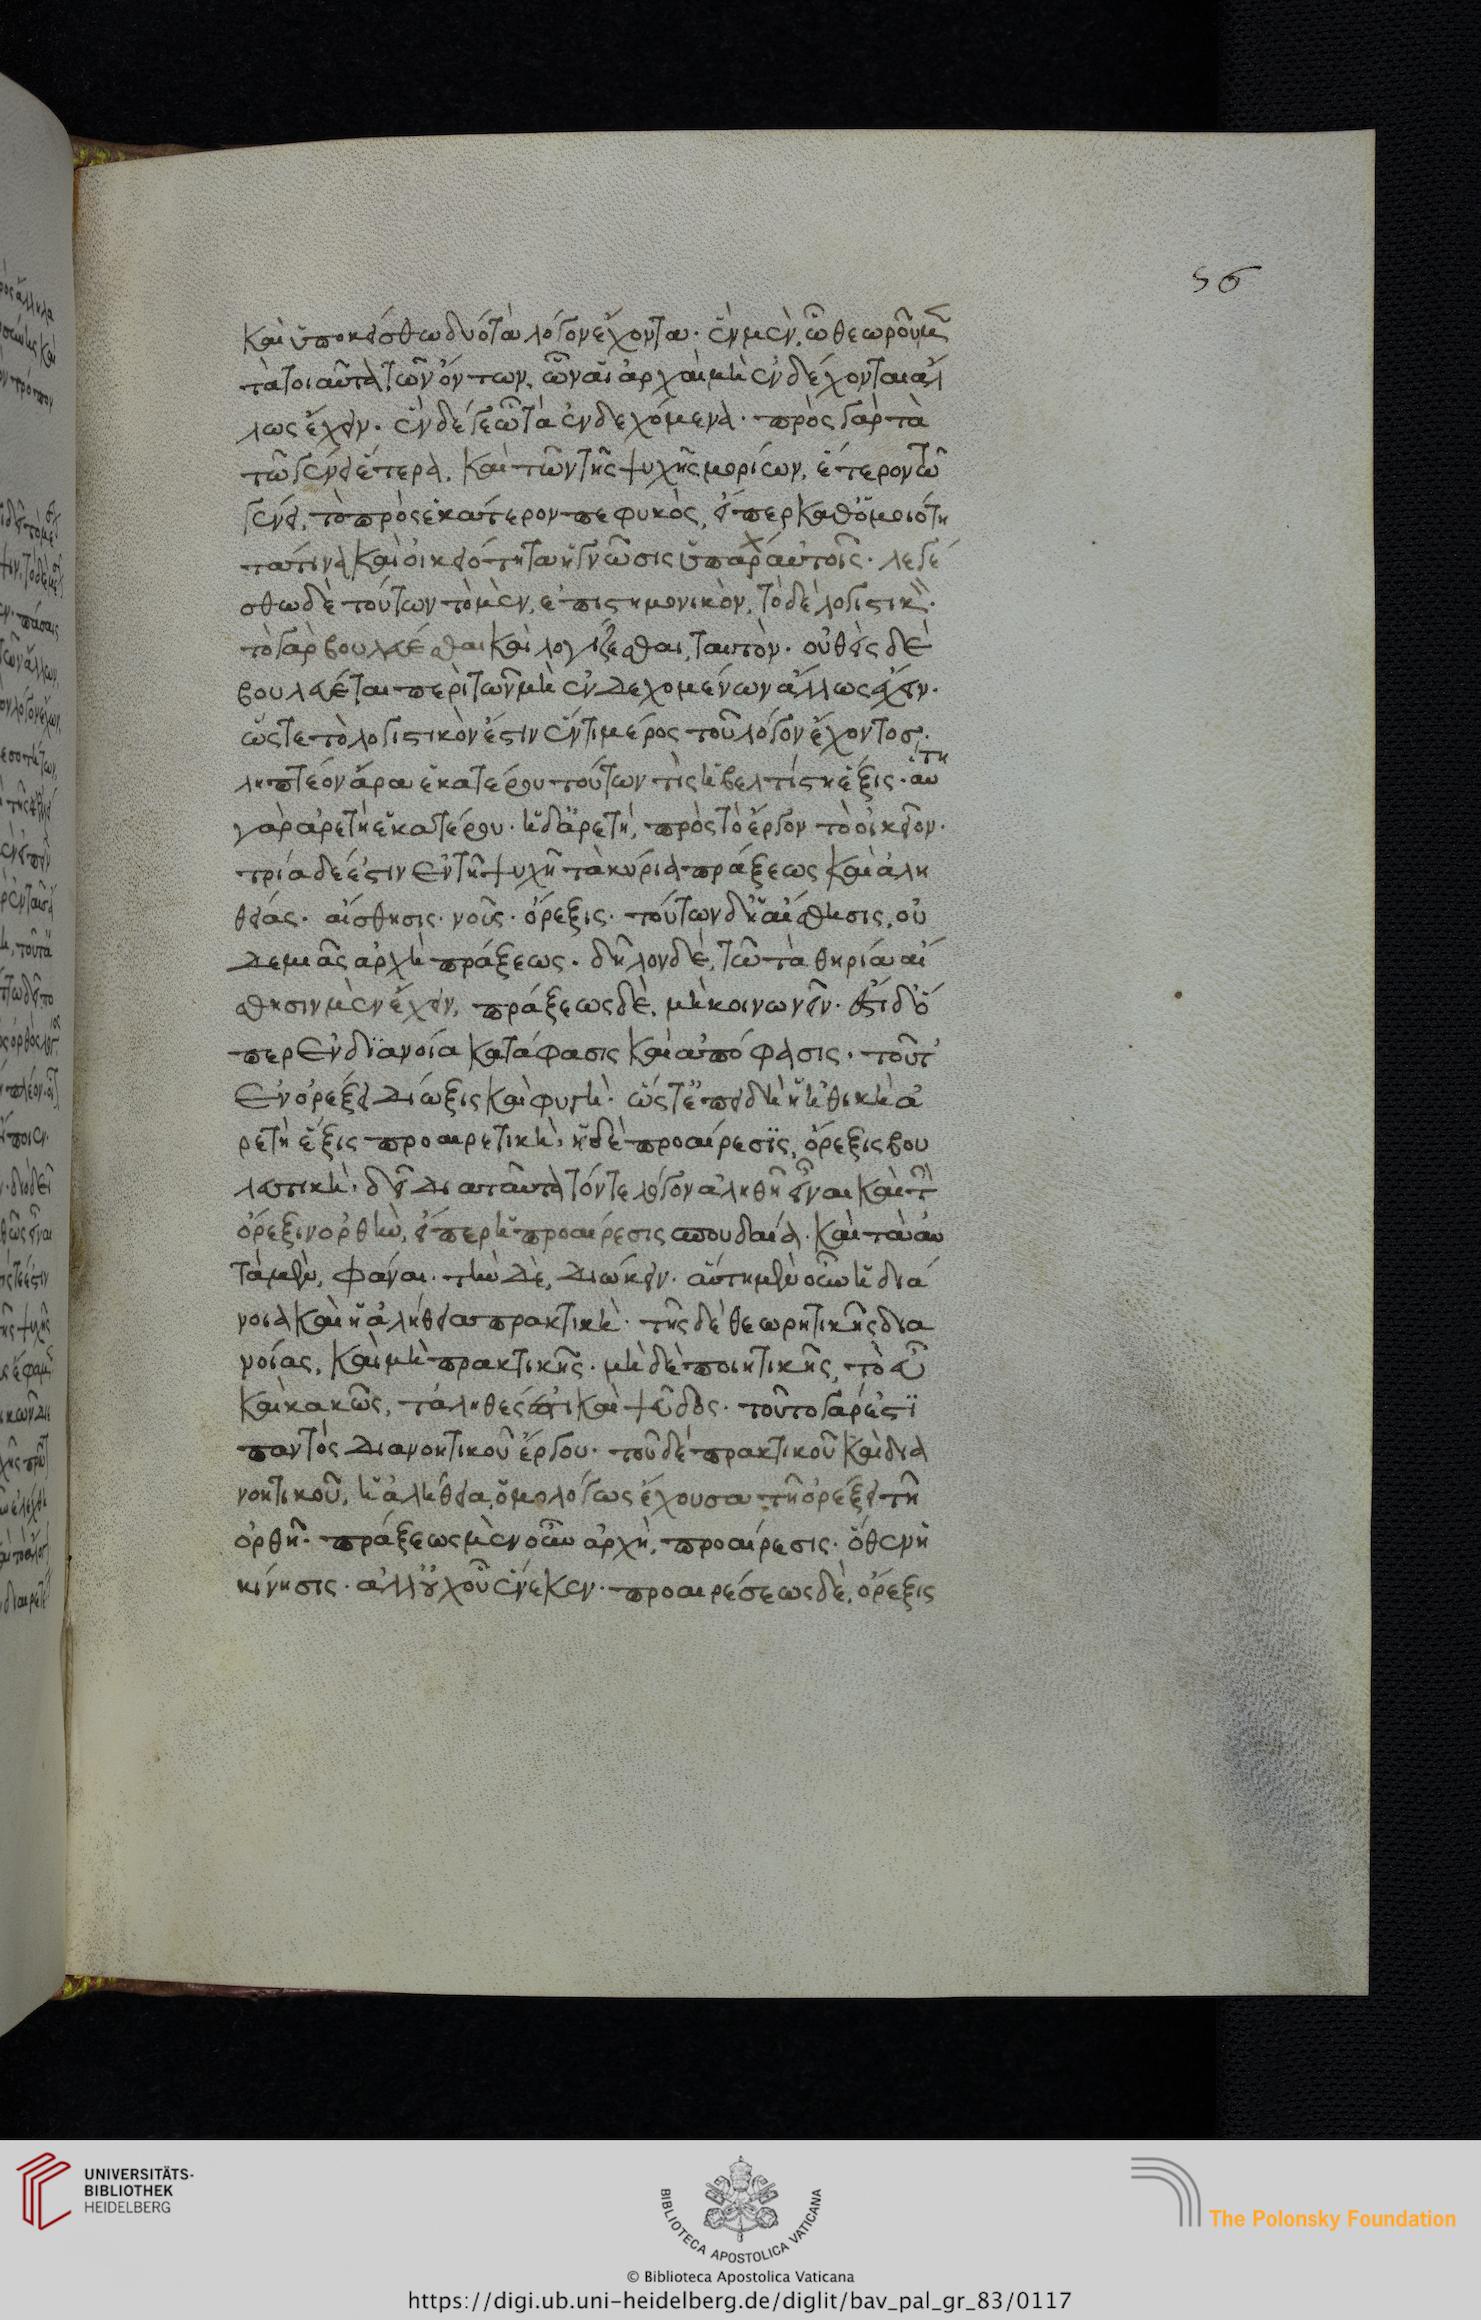 56
καὶ ὑποκείσθω δύο τὰ λόγον ἔχοντα· ἓν μὲν, ὧ θεωροῦμεν
τὰ τοιαῦτα τῶν ὄντων, ὧν αἱ ἀρχαὶ μὴ ἐνδέχονται ἄλ
λως ἔχειν. ἓν δέ γε ὧ τὰ ἐνδεχόμενα. πρὸς γὰρ τὰ
τῶ γένει ἕτερα, καὶ τῶν τῆς ψυχῆς μορίων, ἕτερον τῶ
γένει, τὸ πρὸς ἑκάτερον πεφυκὸς, εἴπερ καθ᾽ ὁμοιότη
τά τινα καὶ οἰκειότητα ἡ γνῶσις ὑπάρχει αὐτοῖς. λεγέ
σθω δὲ τούτων τὸ μὲν, ἐπιστημονικὸν, τὸ δὲ λογιστικὸν.
τὸ γὰρ βουλεύεσθαι καὶ λογίζεσθαι, ταυτὸν. οὐθεὶς δὲ
βουλεύεται περὶ τῶν μὴ ἐνδεχομένων ἄλλως ἔχειν.
ὥστε τὸ λογιστικὸν ἐστιν ἕν τι μέρος τοῦ λόγον ἔχοντος.
ληπτέον ἄρα ἑκατέρου τούτων τίς ἡ βελτίστη ἕξις. αὕτη
γὰρ ἀρετὴ ἑκατέρου. ἡ δ᾽ ἀρετὴ, πρὸς τὸ ἔργον τὸ οἰκεῖον.
τρία δέ ἐστιν ἐν τῆ ψυχῆ τὰ κύρια πράξεως καὶ ἀλη
θείας. αἴσθησις. νοῦς. ὄρεξις. τούτων δ᾽ ἡ αἴσθησις, οὐ
δεμιᾶς ἀρχὴ πράξεως. δῆλον δὲ, τῶ τὰ θηρία αἴ
σθησιν μὲν ἔχειν, πράξεως δὲ, μὴ κοινωνεῖν. ἔστι δ᾽ ὅ
περ ἐν διανοία κατάφασις καὶ ἀπόφασις. τοῦτ᾽
ἐν ὀρέξει δίωξις καὶ φυγὴ. ὥστ᾽ ἐπειδὴ ἡ ἠθικὴ ἀ
ρετὴ ἕξις προαιρετικὴ. ἡ δὲ προαίρεσις, ὄρεξις βου
λευτικὴ. δεῖ διὰ ταῦτα τόν τε λόγον ἀληθῆ εἶναι καὶ τὴν
ὄρεξιν ὀρθὴν, εἴπερ ἡ προαίρεσις σπουδαία. καὶ τὰ αὐ
τὰ μὲν, φάναι. τὴν δὲ, διώκειν. αὕτη μὲν οὖν ἡ διά
νοια καὶ ἡ ἀλήθεια πρακτικὴ. τῆς δὲ θεωρητικῆς δια
νοίας, καὶ μὴ πρακτικῆς. μὴ δὲ ποιητικῆς, τὸ εὖ
καὶ κακῶς, τἀληθές ἐστι καὶ ψεῦδος. τοῦτο γάρ ἐστι
παντὸς διανοητικοῦ ἔργου. τοῦ δὲ πρακτικοῦ καὶ δια
νοητικοῦ, ἡ ἀλήθεια, ὁμολόγως ἔχουσα τῆ ὀρέξει τῆ
ὀρθῆ. πράξεως μὲν οὖν ἀρχὴ, προαίρεσις. ὅθεν ἡ
κίνησις. ἀλλ᾽ οὐχ οὗ ἕνεκεν. προαιρέσεως δὲ, ὄρεξις
UNIVERSITÄTS-
BIBLIOTHEK
HEIDELBERG
BIBLIOTECA APOSTOLICA VATICANA
The Polonsky Foundation
© Biblioteca Apostolica Vaticana
https://digi.ub.uni-heidelberg.de/diglit/bav_pal_gr_83/0117